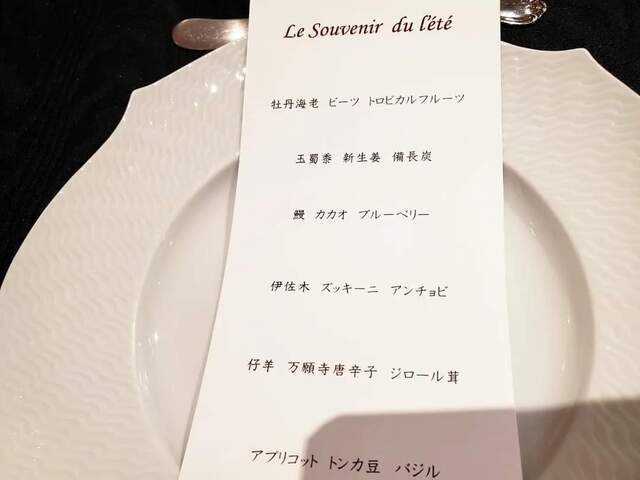 Le Souvenir du l'été
牡丹海老 ビーツ トロピカルフルーツ
玉蜀黍 新生姜 備長炭
鰻 カカオ ブルーベリー
伊佐木 ズッキーニ アンチョビ
仔羊 万願寺唐辛子 ジロール茸
アプリコット トンカ豆 バジル